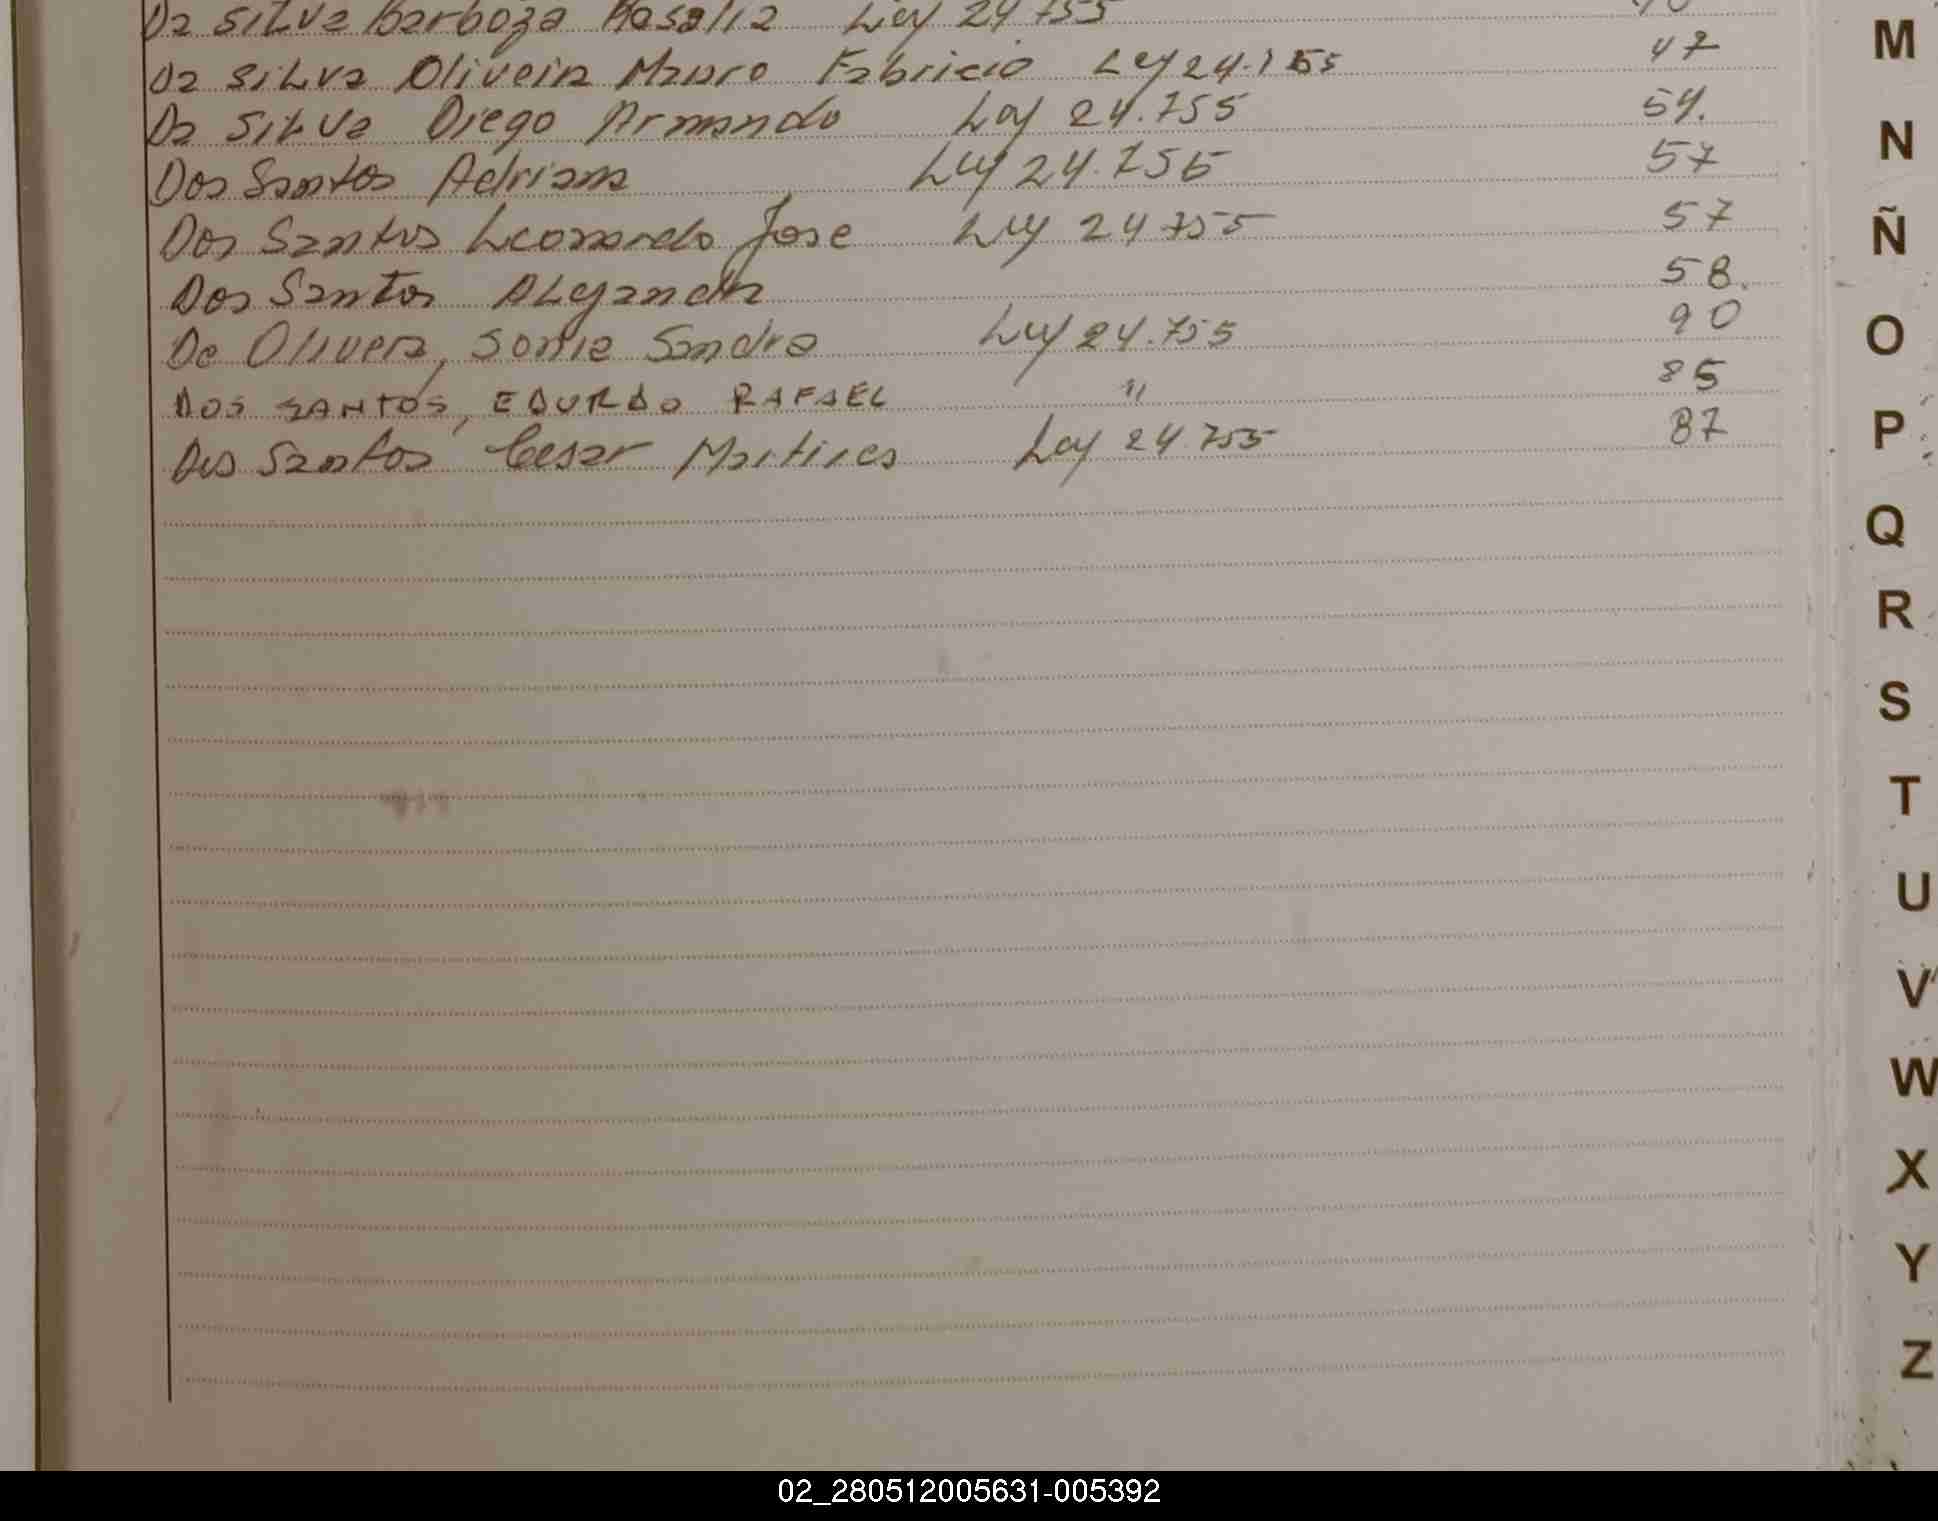 Da Silva Barboza Rosalia Ley 24 755
Da Silva Oliveira Mauro Fabricio Ley 24.755 47
Da Silva Diego Armando Ley 24.755 54.
Dos Santos Adriana Ley 24.755 57
Dos Santos Leonardo Jose Ley 24 755 57
Dos Santos Alejandra 58.
De Olivera, Sonia Sandra Ley 24.755 90
DOS SANTOS, EDURDO RAFAEL " 85
Dos Santos Cesar Martires Ley 24 755 87
M
N
Ñ
O
P
Q
R
S
T
U
V
W
X
Y
Z
02_280512005631-005392